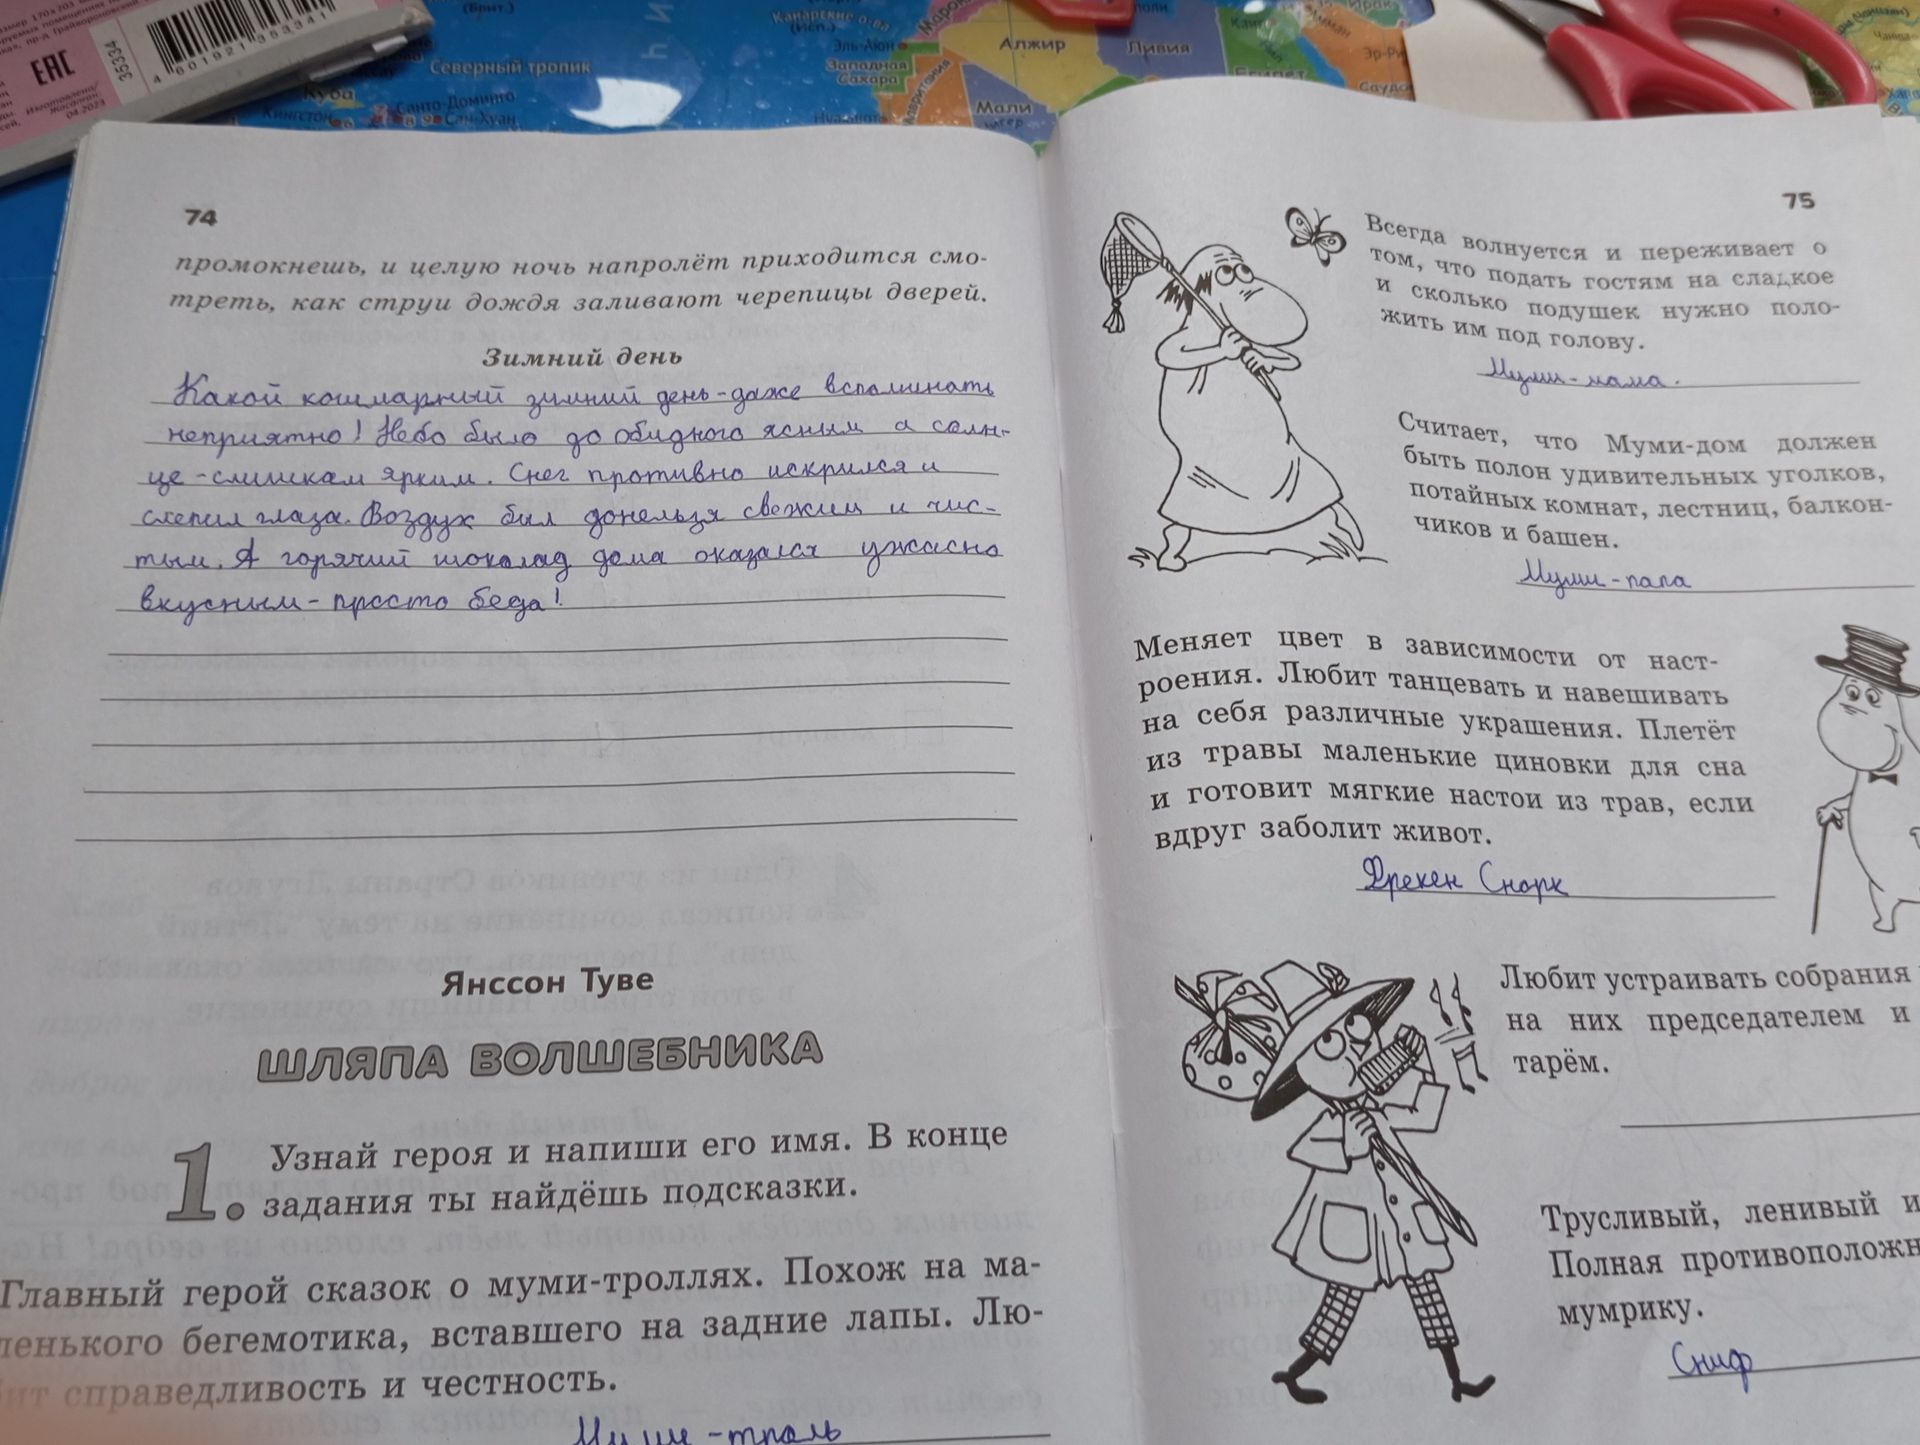 (Брит.)
Канарские о-ва
(Исп.)
Эль-Аюн
Западная
Сахара
Алжир
Ливия
Мали
Северный тропик
Куба
Санто-Доминго
Кингстон
Сан-Хуан
EAC
35334
4 601921 353341
Изготовлено/
04.2023
74
промокнешь, и целую ночь напролёт приходится смо-
треть, как струи дождя заливают черепицы дверей.
Зимний день
Какой кошмарный зимний день - даже вспоминать
неприятно! Небо было до обидного ясным а солн-
це - слишком ярким. Снег противно искрился и
слепил глаза. Воздух был донельзя свежим и чис-
тым. А горячий шоколад дома оказался ужасно
вкусным - просто беда!
Янссон Туве
ШЛЯПА ВОЛШЕБНИКА
1. Узнай героя и напиши его имя. В конце
задания ты найдёшь подсказки.
Главный герой сказок о муми-троллях. Похож на ма-
ленького бегемотика, вставшего на задние лапы. Лю-
бит справедливость и честность.
Муми - троль
75
Всегда волнуется и переживает о
том, что подать гостям на сладкое
и сколько подушек нужно поло-
жить им под голову.
Муми - мама.
Считает, что Муми-дом должен
быть полон удивительных уголков,
потайных комнат, лестниц, балкон-
чиков и башен.
Муми - папа
Меняет цвет в зависимости от наст-
роения. Любит танцевать и навешивать
на себя различные украшения. Плетёт
из травы маленькие циновки для сна
и готовит мягкие настои из трав, если
вдруг заболит живот.
Фрекен Снорк
Любит устраивать собрания
на них председателем и
тарём.
Трусливый, ленивый и
Полная противоположн
мумрику.
Сниф